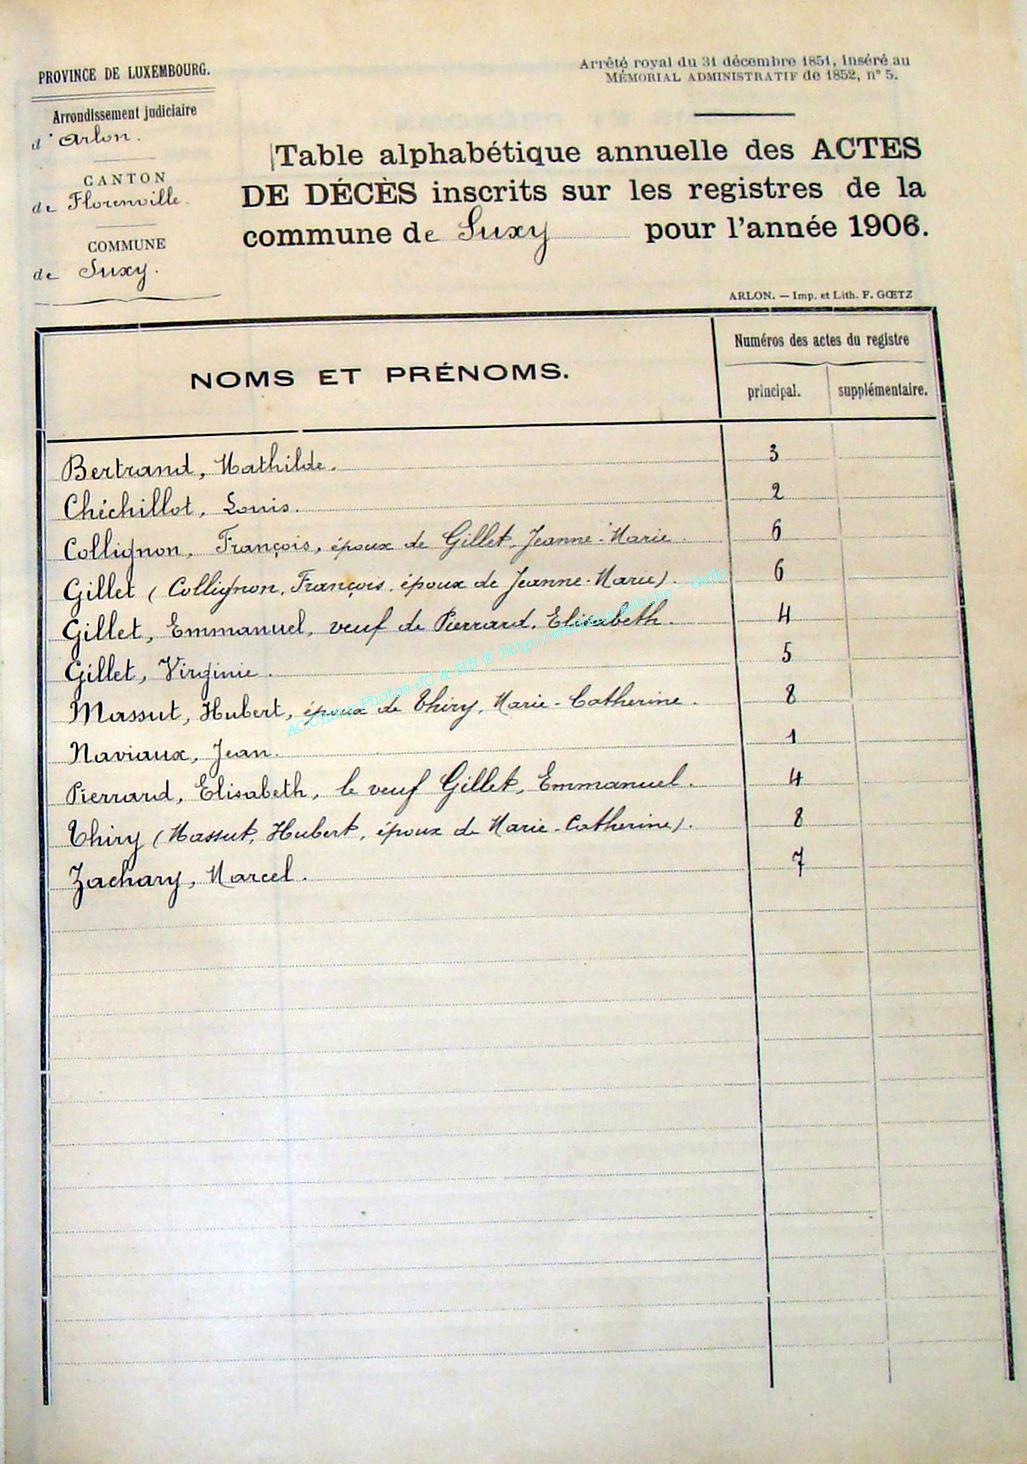 PROVINCE DE LUXEMBOURG.
Arrondissement judiciaire
d'Arlon.
CANTON
de Florenville.
COMMUNE
de Suxy.
Arrêté royal du 31 décembre 1851, inséré au
MÉMORIAL ADMINISTRATIF de 1852, n° 5.
Table alphabétique annuelle des ACTES
DE DÉCÈS inscrits sur les registres de la
commune de Suxy pour l'année 1906.
ARLON. — Imp. et Lith. F. GŒTZ
NOMS ET PRÉNOMS.
Numéros des actes du registre
principal. supplémentaire.
Bertrand, Mathilde. 3
Chéchillot, Louis. 2
Collignon, François, époux de Gillet, Jeanne-Marie. 6
Gillet (Collignon, François, époux de Jeanne-Marie). 6
Gillet, Emmanuel, veuf de Pierrard, Elisabeth. 4
Gillet, Virginie. 5
Massut, Hubert, époux de Thiry, Marie-Catherine. 8
Naviaux, Jean. 1
Pierrard, Elisabeth, le veuf Gillet, Emmanuel. 4
Thiry (Massut, Hubert, époux de Marie-Catherine). 8
Zachary, Marcel. 7